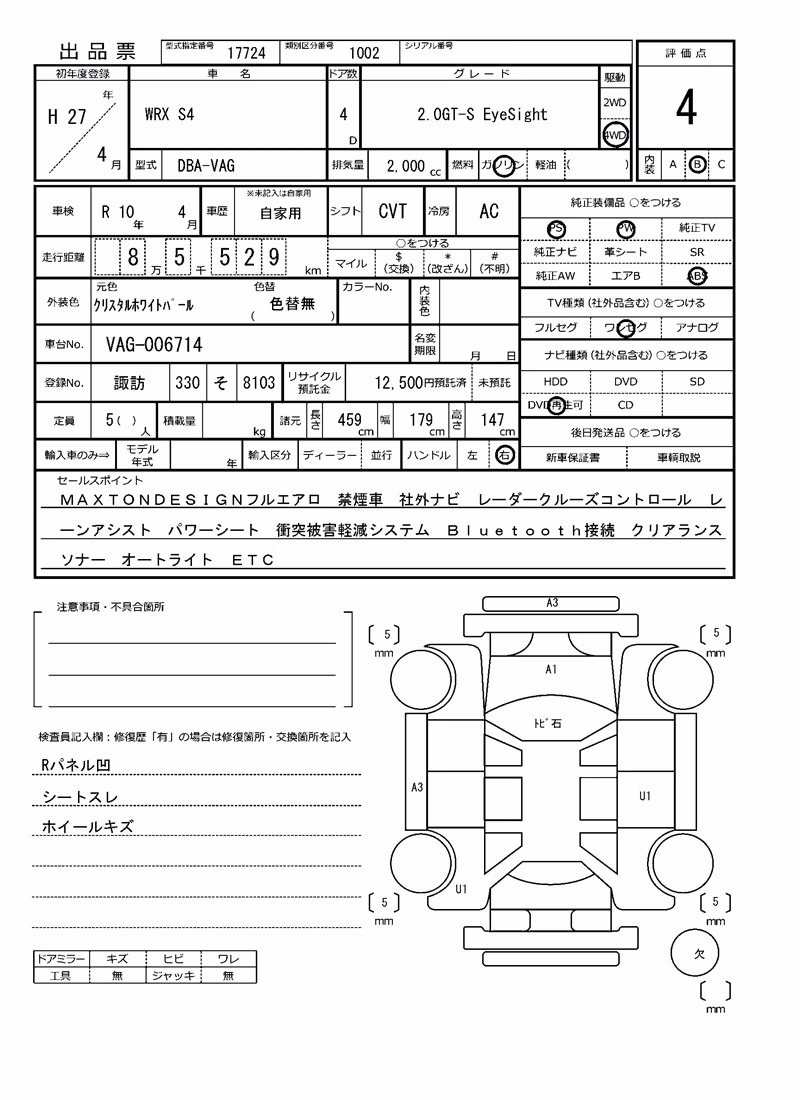 出品票 型式指定番号 17724 類別区分番号 1002 シリアル番号
評価点
初年度登録 車名 ドア数 グレード 駆動
H 27 年 4 月 WRX S4 4 D 2.0GT-S EyeSight 2WD 4WD
4
型式 DBA-VAG 排気量 2,000 cc 燃料 ガソリン 軽油 ( ) 内装 A B C
車検 R 10 年 4 月 車歴 ※未記入は自家用 自家用 シフト CVT 冷房 AC
走行距離 8 万 5 千 5 2 9 km ○をつける
マイル $ (交換) * (改ざん) # (不明)
外装色 元色 クリスタルホワイトパール 色替 ( 色替無 ) カラーNo. 内装色
車台No. VAG-006714 名変期限 月 日
登録No. 諏訪 330 そ 8103 リサイクル預託金 12,500円預託済 未預託
定員 5 ( ) 人 積載量 kg 諸元 長さ 459 cm 幅 179 cm 高さ 147 cm
輸入車のみ⇒ モデル年式 年 輸入区分 ディーラー 並行 ハンドル 左 右
純正装備品 ○をつける
PS PW 純正TV
純正ナビ 革シート SR
純正AW エアB ABS
TV種類 (社外品含む) ○をつける
フルセグ ワンセグ アナログ
ナビ種類 (社外品含む) ○をつける
HDD DVD SD
DVD再生可 CD
後日発送品 ○をつける
新車保証書 車輌取説
セールスポイント
ＭＡＸＴＯＮＤＥＳＩＧＮフルエアロ 禁煙車 社外ナビ レーダークルーズコントロール レ
ーンアシスト パワーシート 衝突被害軽減システム Ｂｌｕｅｔｏｏｔｈ接続 クリアランス
ソナー オートライト ＥＴＣ
注意事項・不具合箇所
検査員記入欄：修復歴「有」の場合は修復箇所・交換箇所を記入
Rパネル凹
シートスレ
ホイールキズ
ドアミラー キズ ヒビ ワレ
工具 無 ジャッキ 無
A3
[ 5 ] mm [ 5 ] mm
A1
トビ石
A3 U1
U1
[ 5 ] mm [ 5 ] mm
欠
[ ] mm